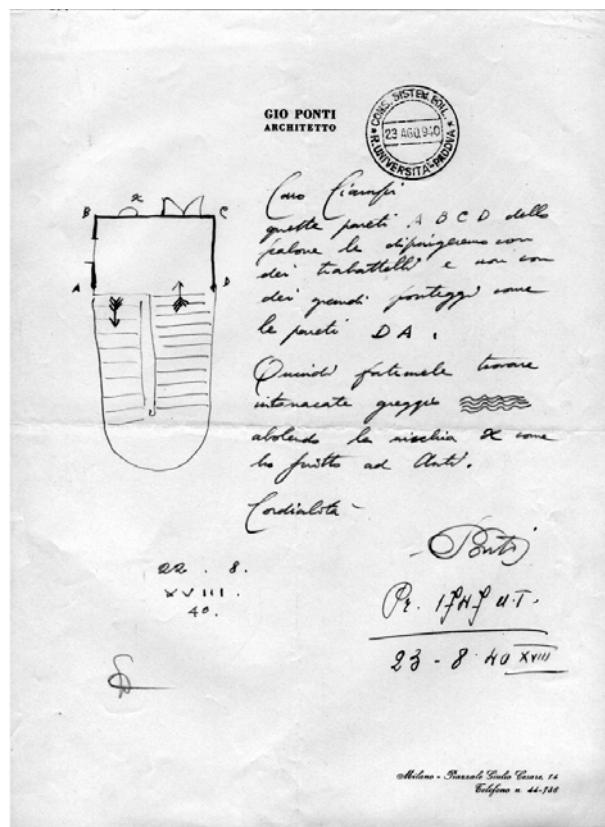 GIO PONTI
ARCHITETTO
CONS. SISTEM. EDIL.
23 AGO. 940
R. UNIVERSITÀ - PADOVA
B x C
A D
Caro Ciampi
queste pareti A B C D dello
salone le dipingeremo con
dei trabattelli e non con
dei grandi ponteggi come
le pareti D A.
Quindi fatemele trovare
intonacate greggie
abolendo la nicchia x come
ho scritto ad Anti.
Cordialità -
Ponti
22 . 8 .
XVIII .
40 .
Pr. U.T.
23 - 8 - 40 XVIII
Milano - Piazzale Giulio Cesare, 14
Telefono n. 44-736